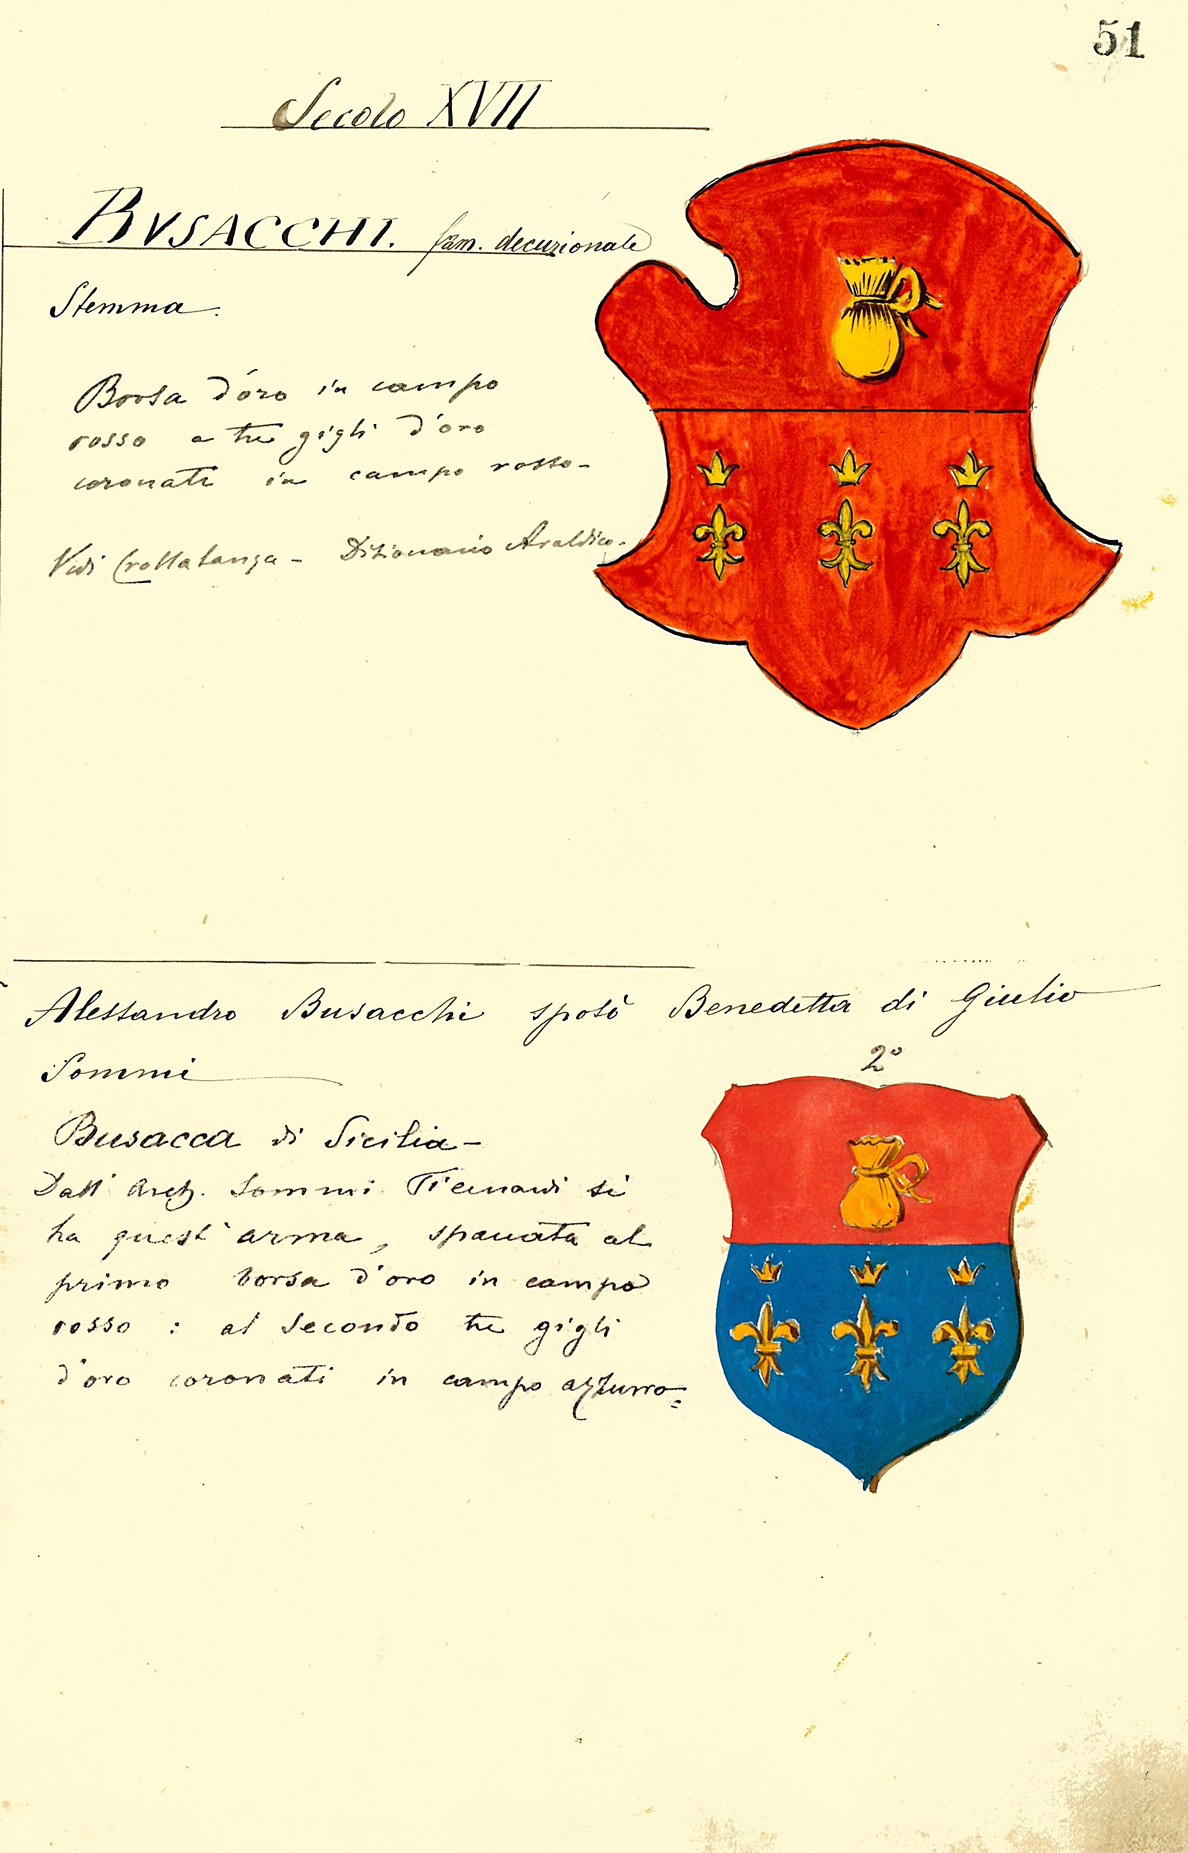 51
Secolo XVII
BVSACCHI. fam. decurionale
Stemma.
Borsa d'oro in campo
rosso e tre gigli d'oro
coronati in campo rosso-
Vedi Crollalanza - Dizionario Araldico.
Alessandro Busacchi sposò Benedetta di Giulio
Sommi
2°
Busacca di Sicilia-
Dall' Arch. Sommi Picenardi si
ha quest'arma, spaccata al
primo borsa d'oro in campo
rosso : al secondo tre gigli
d'oro coronati in campo azzurro=